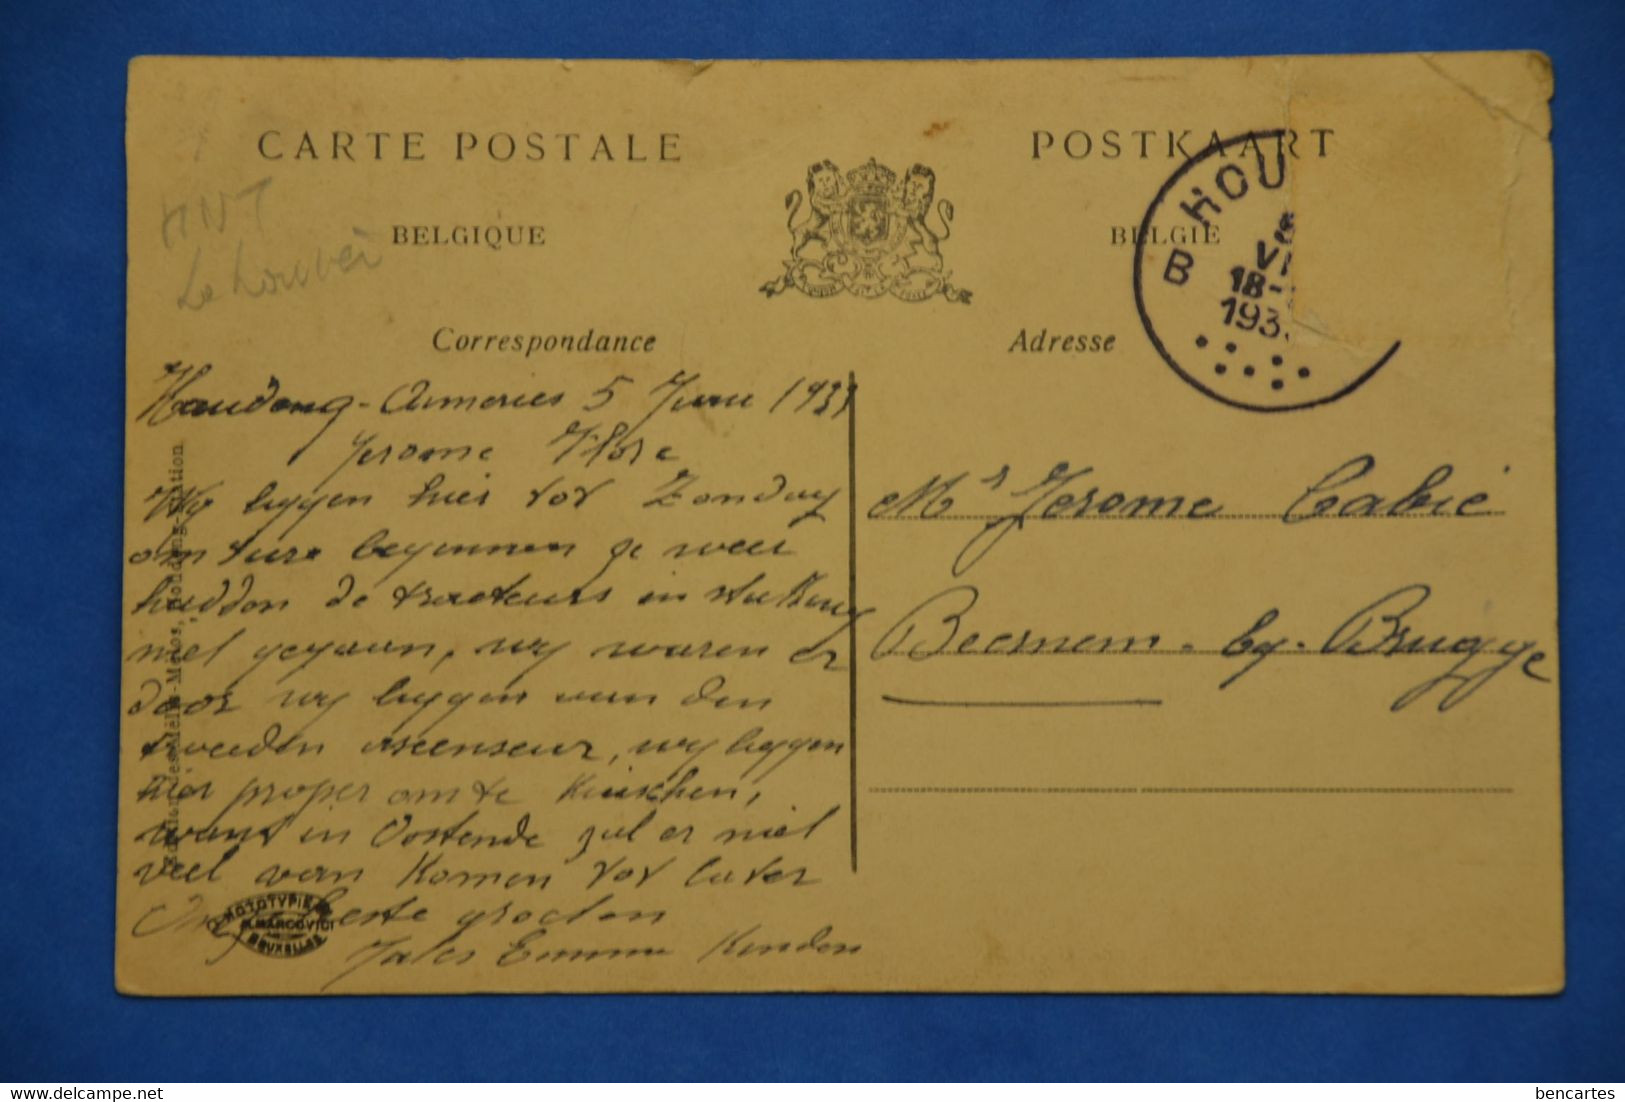 CARTE POSTALE
POSTKAART
BELGIQUE
BELGIË
HNT
Le Louver
B HOU
VI
18-
193
Correspondance
Adresse
Houdeng-Aimeries 5 Juni 1933
Jerome Flore
Wy leggen hier tot Zondag
om ture begennen ge weer
hadden de tracteurs in stukken
niet gegaan, wy waren er
door wy leggen van den
tweeden ascenseur, wy leggen
hier proper om te kuischen,
want in Oostende zal er niet
veel van Komen tot later
beste groeten
Jules Emma Kinderen
Mr Jerome Cabié
Beernem - by - Brugge
Edition des Mélis-Melos, Houdeng-Station
PHOTOTYPIE
MARCOVICI
BRUXELLES
bencartes